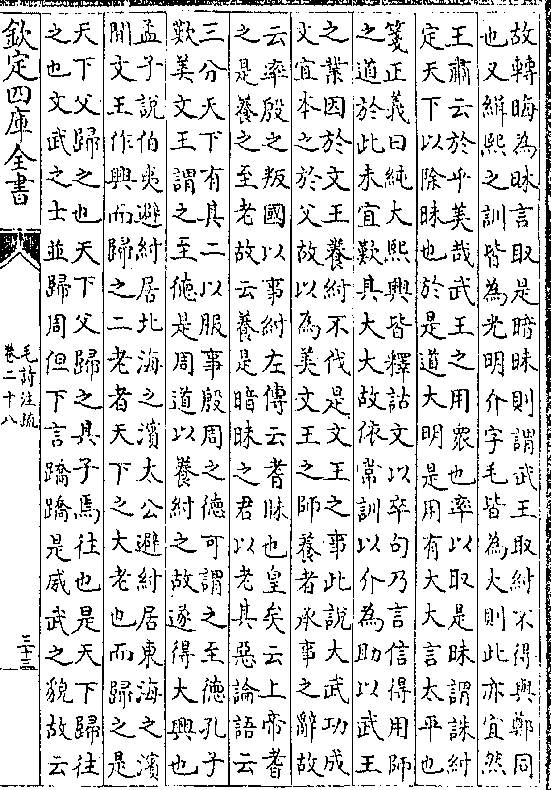 故轉晦為昧言取是暗昧則謂武王取紂不得與鄭同
也又緝熙之訓皆為光明介字毛皆為大則此亦宜然
王肅云於乎美哉武王之用眾也率以取是昧謂誅紂
定天下以除昧也於是道大明是用有大大言太平也
箋正義曰純大熙興皆釋詁文以卒句乃言信得用師
之道於此未宜歎其大大故依常訓以介為助以武王
之業因於文王養紂不伐是文王之事此說大武功成
又宜本之於父故以為美文王之師養者承事之辭故
云率殷之叛國以事紂左傳云耆昧也皇矣云上帝耆
之是養之至老故云養是暗昧之君以老其惡論語云
三分天下有其二以服事殷周之德可謂之至德孔子
歎美文王謂之至德是周道以養紂之故遂得大興也
孟子說伯夷避紂居北海之濱太公避紂居東海之濱
聞文王作興而歸之二老者天下之大老也而歸之是
天下父歸之也天下父歸之其子焉往也是天下歸往
之也文武之士並歸周但下言蹻蹻是威武之貌故云
欽定四庫全書
毛詩注疏
卷二十八
三十三